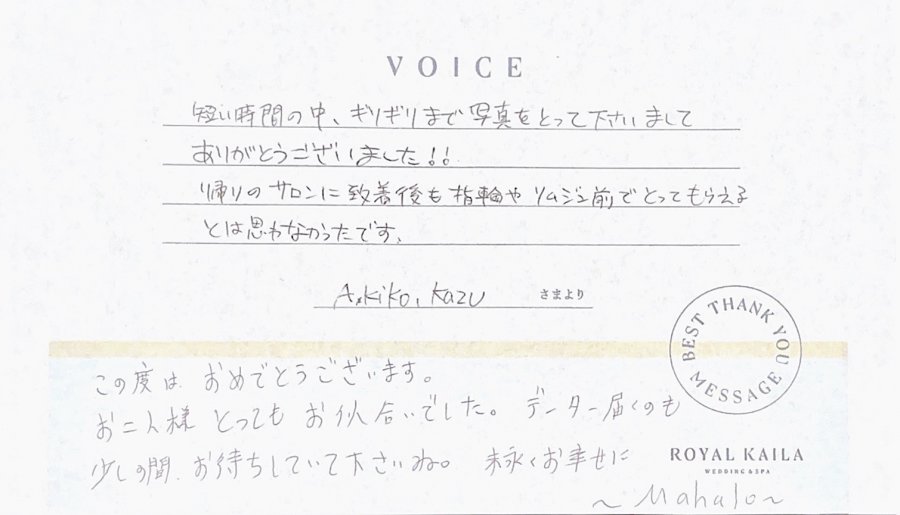 VOICE
短い時間の中、ギリギリまで写真をとって下さいまして
ありがとうございました!!
帰りのサロンに致着後も指輪やリムジン前でとってもらえる
とは思わなかったです、
Akiko, Kazu さまより
BEST THANK YOU MESSAGE
この度は おめでとうございます。
お二人様 とっても お似合いでした。 データー届くのも
少しの間、お待ちしていて下さいね。 末永くお幸せに
ROYAL KAILA
WEDDING & SPA
~Mahalo~